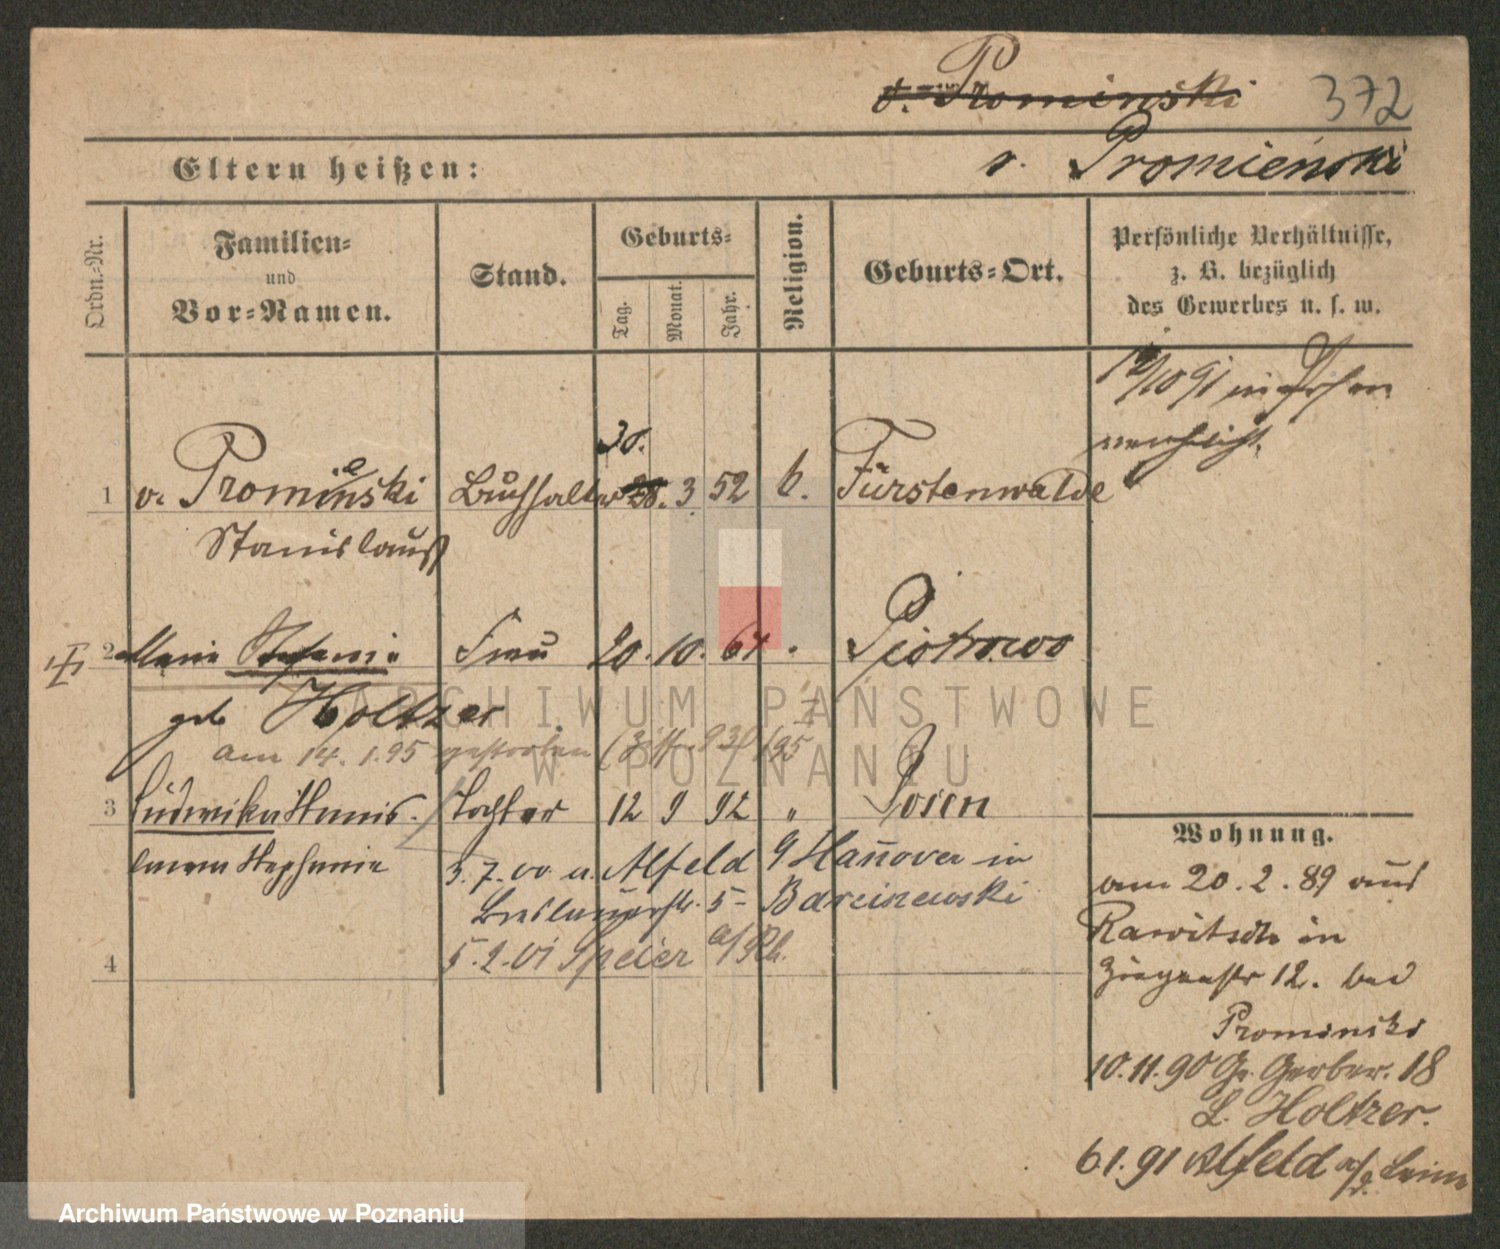 v. Prominski 372
Eltern heißen: v. Promieński
Ordn.=Nr.
Familien=
und
Vor=Namen.
Stand.
Geburts=
Tag.
Monat.
Jahr.
Religion.
Geburts=Ort.
Persönliche Verhältnisse,
z. B. bezüglich
des Gewerbes u. s. w.
10/10 91 in Posen
verehelicht.
30.
1 v. Promienski Buchhalter 28. 3 52 k. Fürstenwalde
Stanislauß
2 Marie Stefanie Frau 20. 10. 64 " Piotrowo
geb Holtzer
am 14. 1. 95 gestorben
3 Ludwika Stanis- Tochter 12 9 92 " Posen
lawa Stephanie
3. 7. 00 u. Alfeld Hannover in
Breslauerstr. 5 Barcinewski
5. 2. 01 Speier a/Rh.
4
Wohnung.
am 20. 2. 89 aus
Rawitsch in
Ziegenstr 12. bei
Prominski
10. 11. 90 Gr. Gerber. 18
L. Holtzer.
6 1. 91 Alfeld a/d. Leine
ARCHIWUM PAŃSTWOWE
W POZNANIU
Archiwum Państwowe w Poznaniu